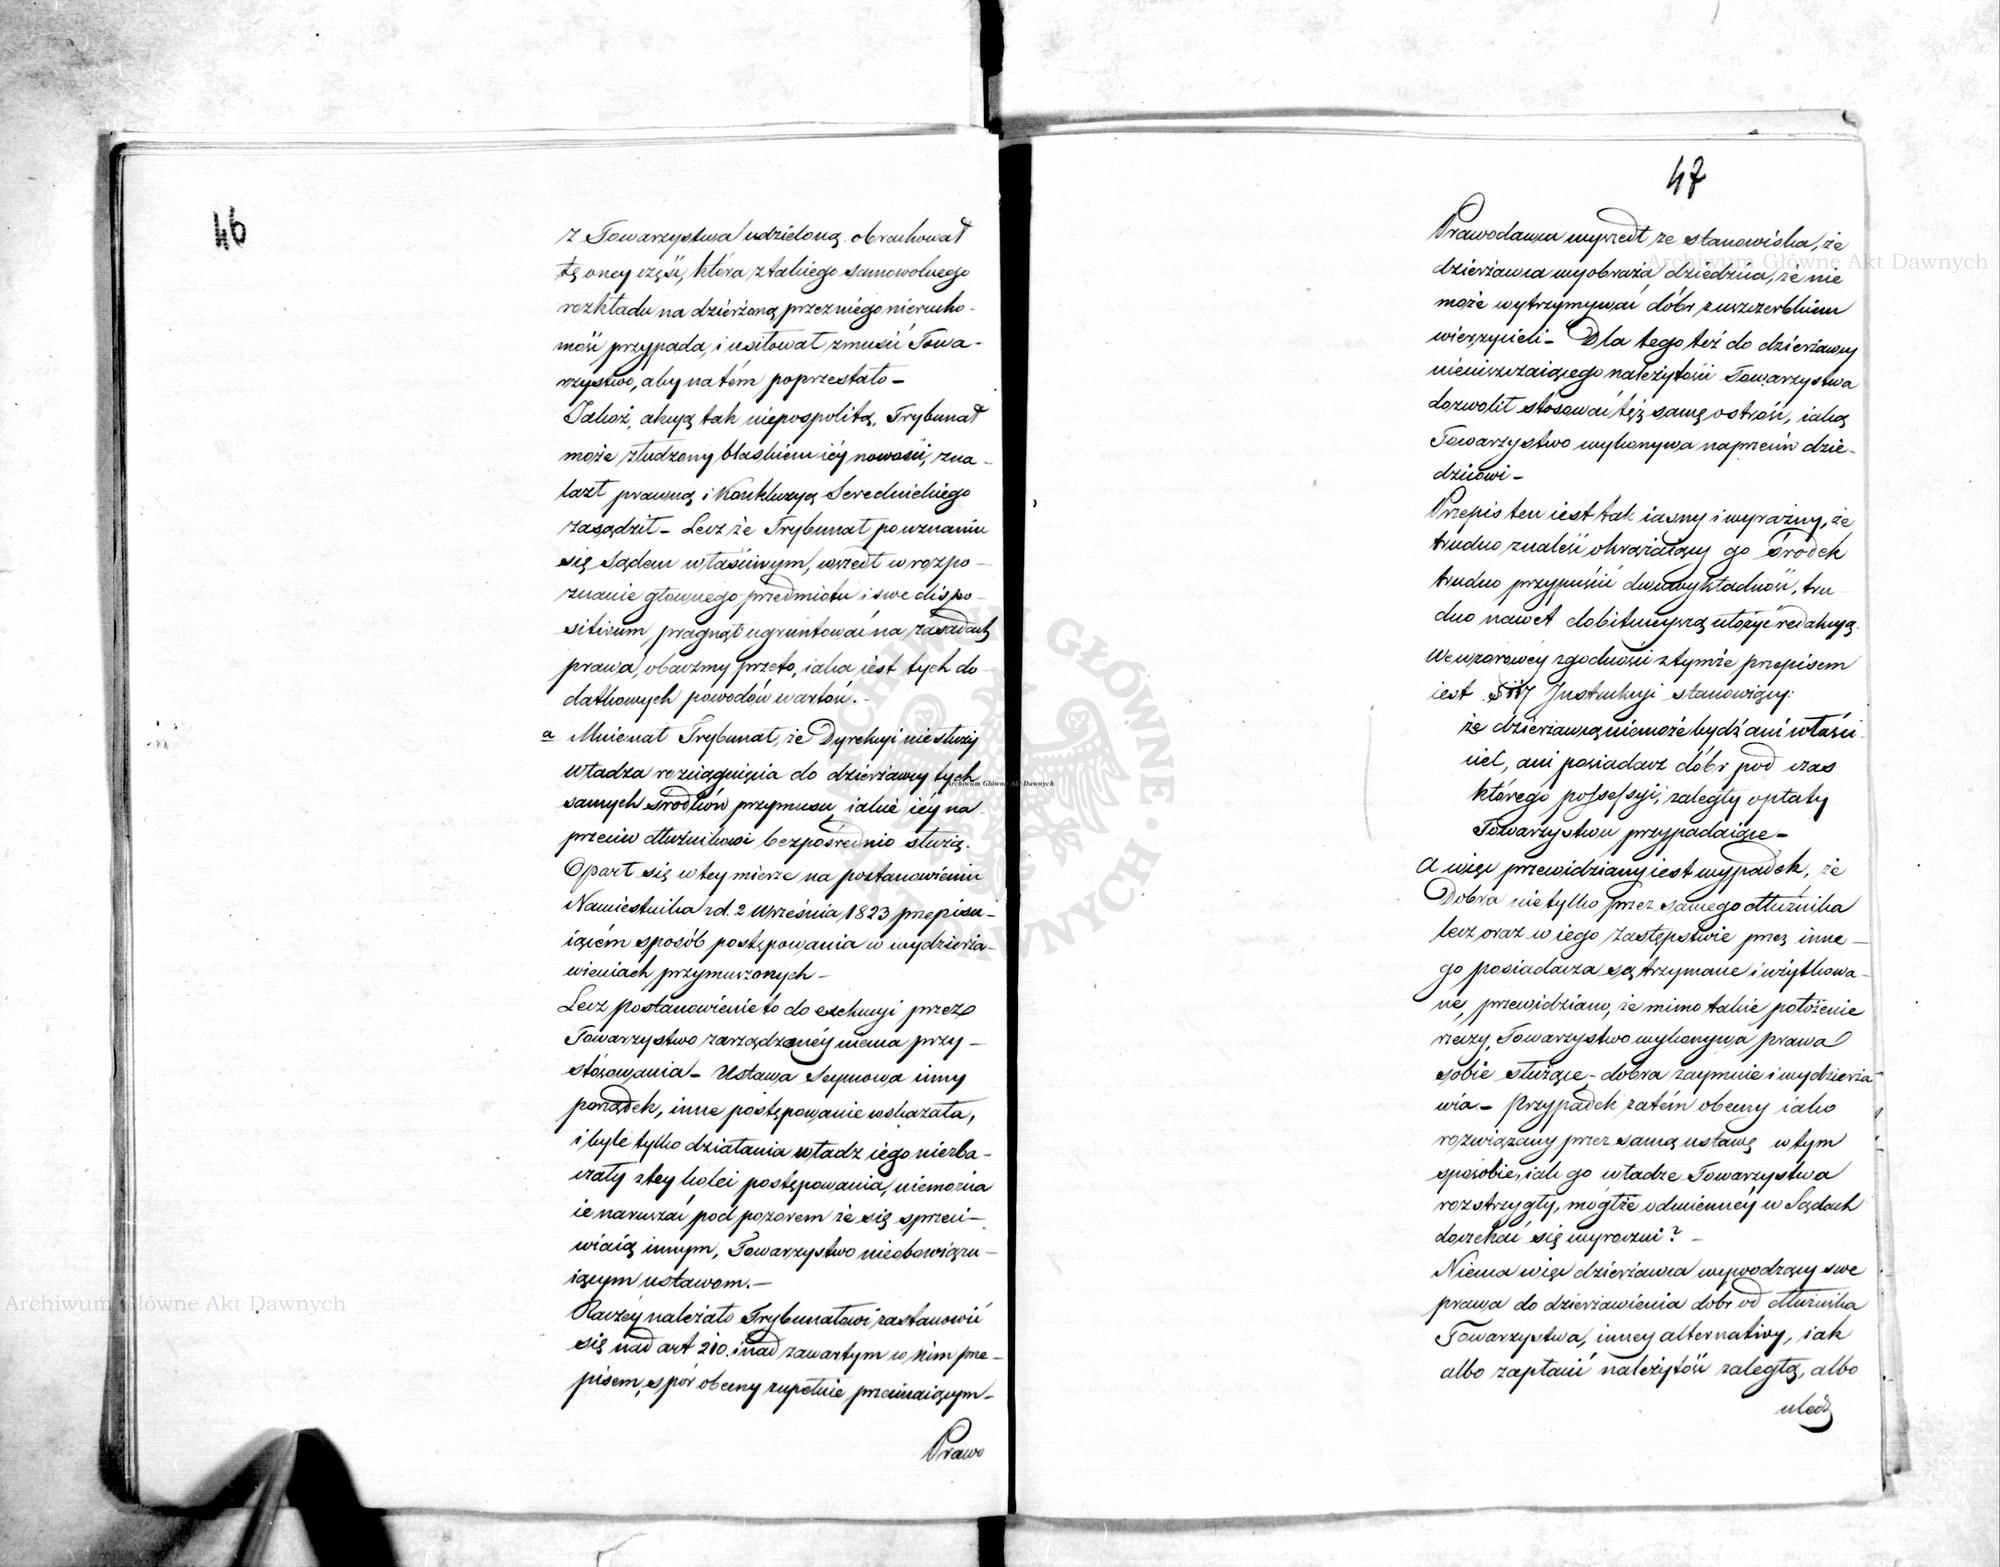 46
z Towarzystwa udzieloną, obrachował
tę oney część, która z takiego samowolnego
rozkładu na dzierżoną przez niego nierucho-
mość przypada, i usiłował zmusić Towa-
rzystwo, aby na tém poprzestało –
Jakoż, akcyą tak niepospolitą, Trybunał
może złudzony blaskiem iéy nowości, zna-
lazł prawną i Konkluzyą Serednickiego
zasądził – Lecz że Trybunał po uznaniu
się Sądem właściwym, wszedł w rozpo-
znanie głównego przedmiotu i swe dispo-
sitivum pragnął ugruntować na zasadach
prawa, obaczmy przeto, iaka iest tych do-
datkowych powodów wartość. –
a Mniemał Trybunał, że Dyrekcyi nie służy
władza rozciągnięcia do dzierżawcy tych
samych środków przymusu, iakie iéy na-
przeciw dłużnikowi bezpośrednio służą.
Oparł się w tey mierze na postanowieniu
Namiestnika z d. 2 Września 1823 przepisu-
iącém sposób postępowania w wydzierża-
wieniach przymuszonych –
Lecz postanowienie to do exekucyi przez
Towarzystwo zarządzonéy niema przy-
stósowania – Ustawa Seymowa inny
porządek, inne postępowanie wskazała,
i byle tylko działania władz iego niezba-
czały z tey kolei postępowania, niemożna
ie naruszać pod pozorem że się sprzeci-
wiaią innym, Towarzystwo nieobowięzu-
iącym ustawom. –
Raczéy należało Trybunałowi zastanowić
się nad art 210. i nad zawartym w nim prze-
pisem, spór obecny zupełnie przecinaiącym –
Prawo
47
Prawodawca wyszedł ze stanowiska, że
dzierżawca wyobraża dziedzica, że nie
może wytrzymywać dóbr z uszczerbkiem
wierzycieli – Dla tego też do dzierżawcy
nieuiszczaiącego należytości Towarzystwa
dozwolił stosować tęż samę ostrość, iaką
Towarzystwo wykonywa naprzeciw dzie-
dzicowi –
Przepis ten iest tak iasny i wyraźny, że
trudno znaleść okrążaiący go środek
trudno przypuścić dwuwykładność, tru-
dno nawet dobitnieyszą ułożyć redakcyą.
We wzorowéy zgodności z tymże przepisem
iest § 117 Instrukcyi stanowiący:
że dzierżawcą niemoże bydź ani właści-
ciel, ani posiadacz dóbr pod czas
którego possessyi, zaległy opłaty
Towarzystwu przypadaiące –
A więc przewidziany iest wypadek, że
Dobra nie tylko przez samego dłużnika
lecz oraz w iego zastępstwie przez inne-
go posiadacza są trzymane i użytkowa-
ne, przewidziano, że mimo takie położenie
rzeczy, Towarzystwo wykonywa prawa
sobie służące – dobra zaymuie i wydzierża-
wia – Przypadek zatém obecny iako
rozwiązany przez samą ustawę w tym
sposobie, iak go władze Towarzystwa
rozstrzygły, mógłże odmiennéy w Sądach
doczekać się wyroczni? –
Niema więc dzierżawca wywodzący swe
prawa do dzierżawienia dóbr od dłużnika
Towarzystwa, inney alternatiwy, iak
albo zapłacić należytość zaległą, albo
uledz
Archiwum Główne Akt Dawnych
Archiwum Główne Akt Dawnych
Archiwum Główne Akt Dawnych